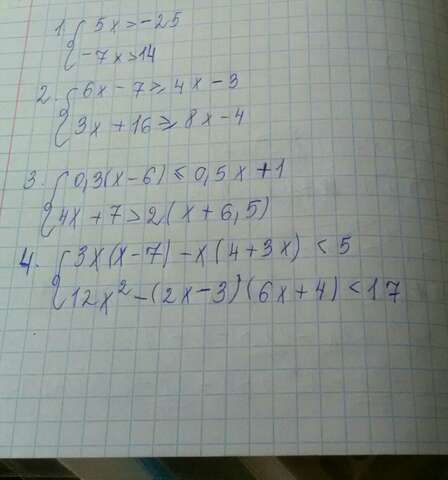 1. { 5x > -25
-7x > 14
2. { 6x - 7 ⩾ 4x - 3
3x + 16 ⩾ 8x - 4
3. { 0,3(x-6) ⩽ 0,5x + 1
4x + 7 > 2(x + 6,5)
4. { 3x(x-7) - x(4+3x) < 5
12x² - (2x-3)(6x+4) < 17